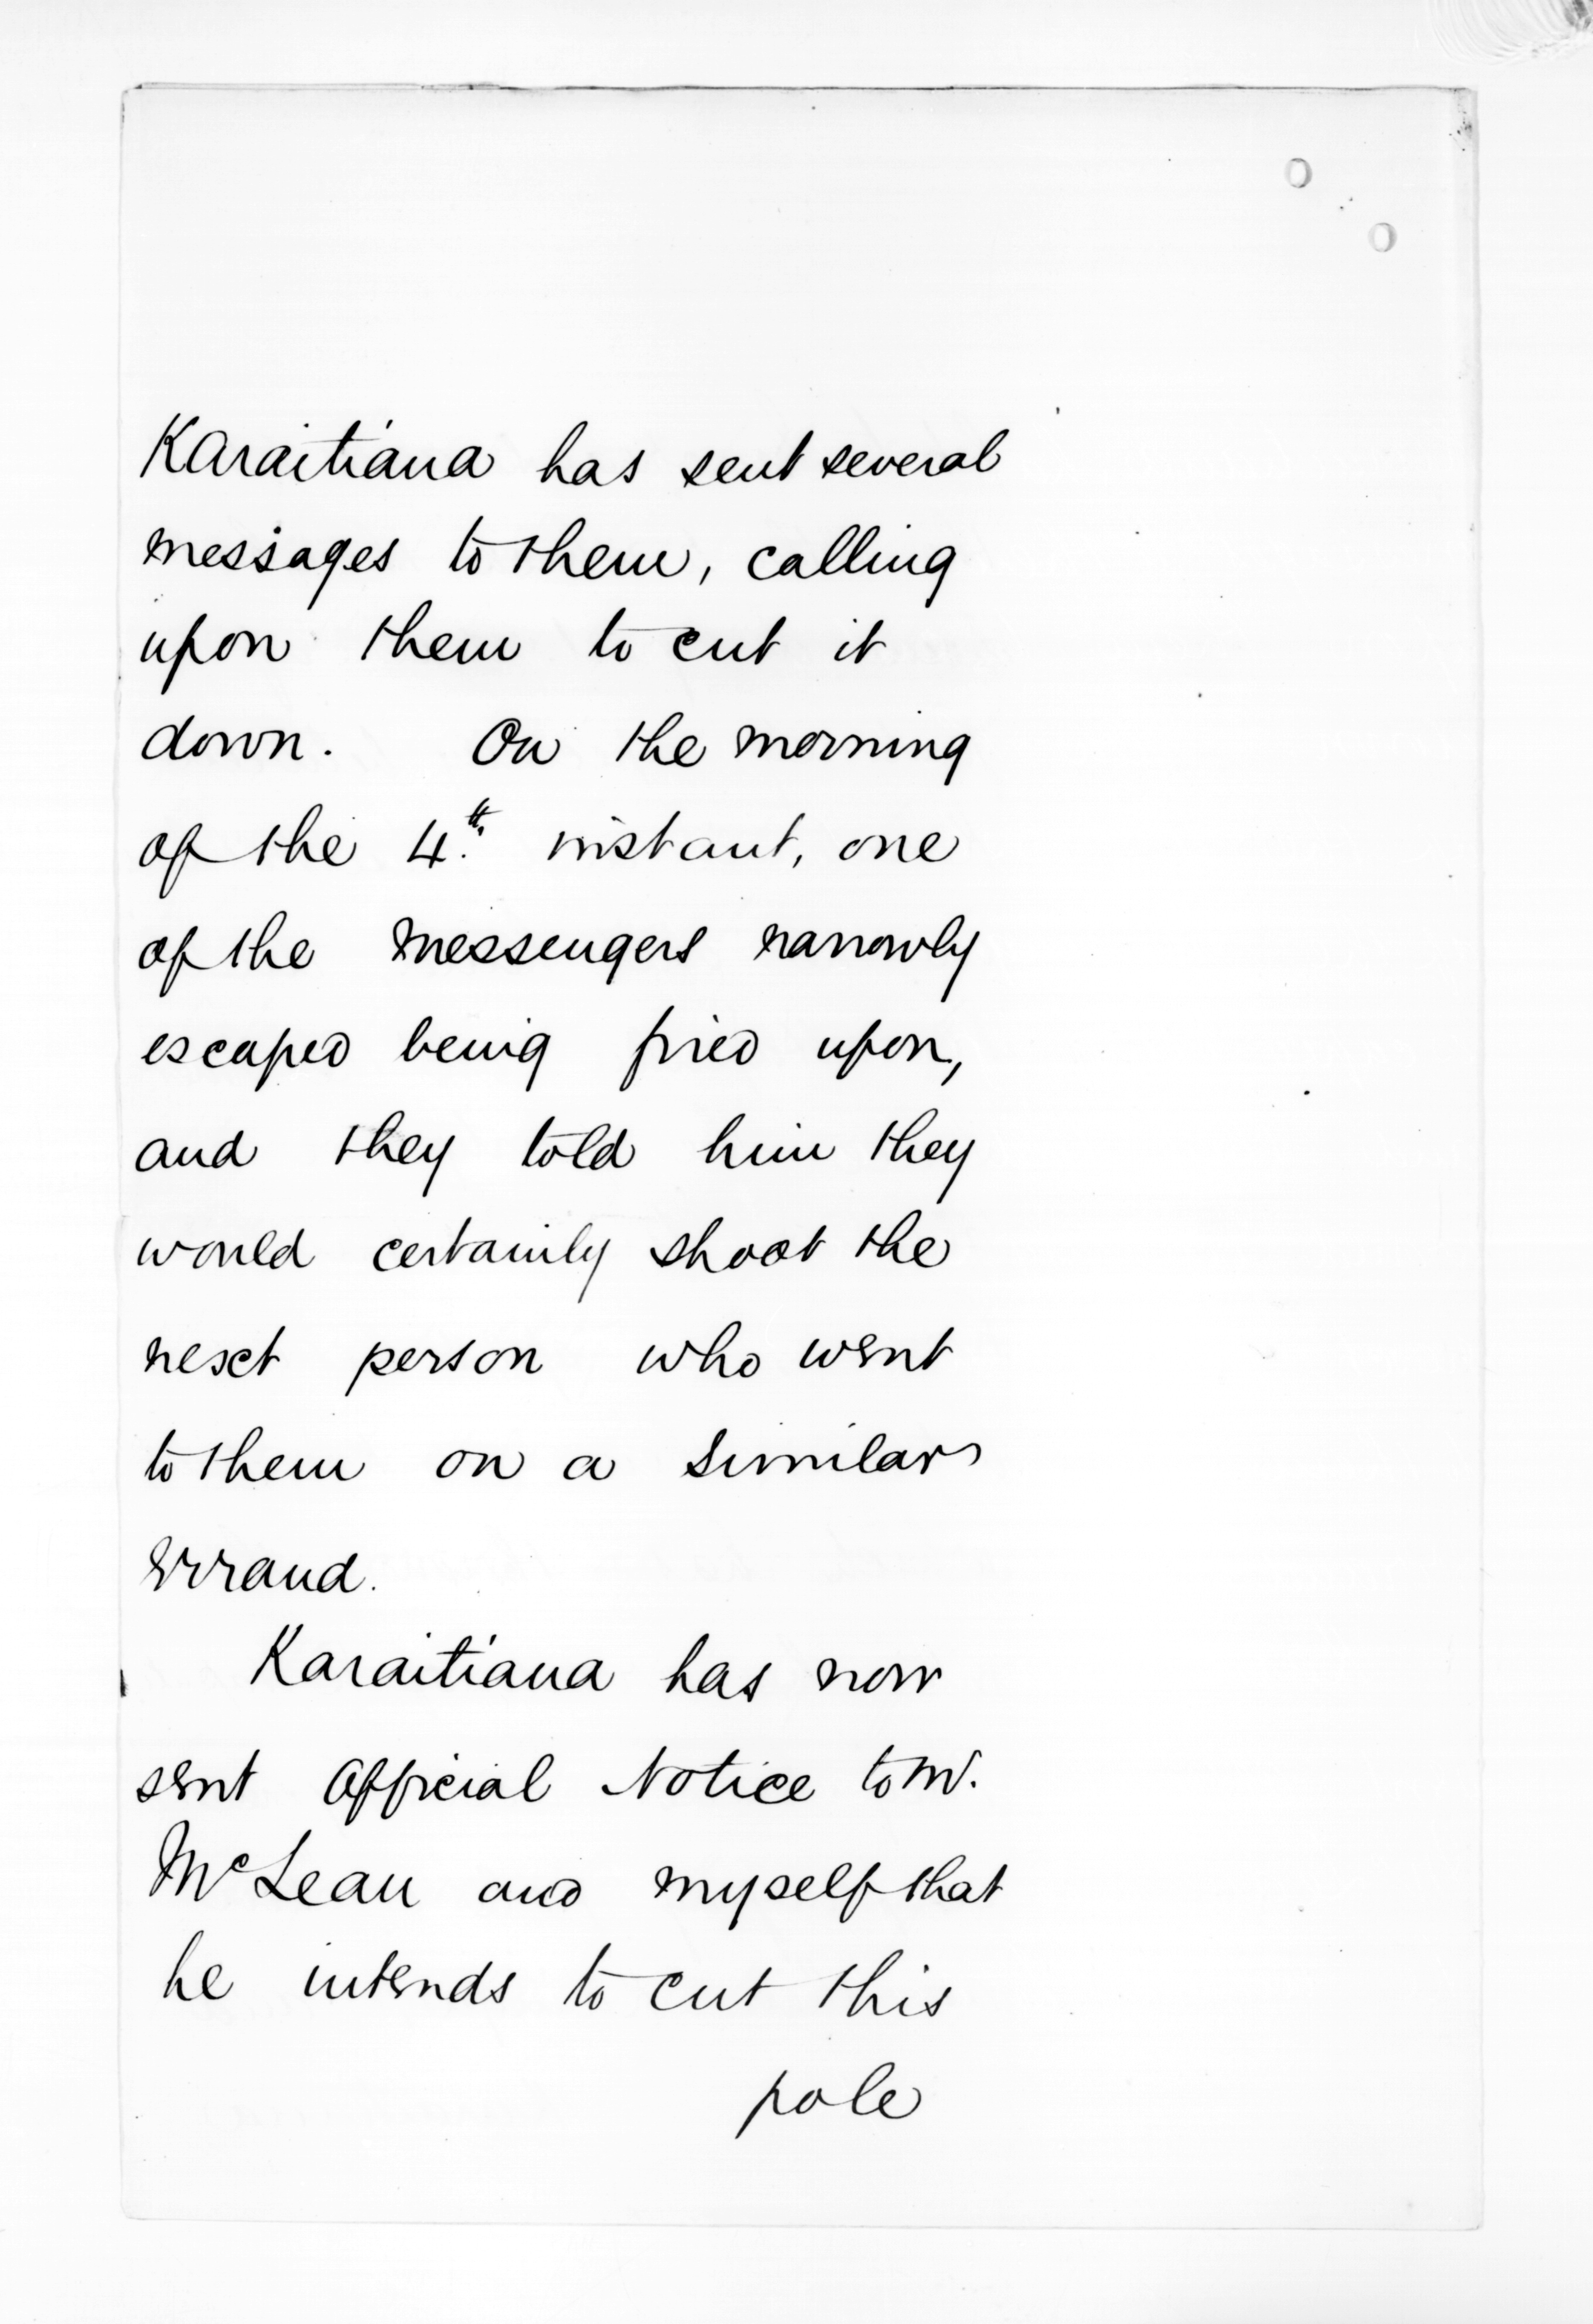 Karaitiana has sent several
messages to them, calling
upon them to cut it
down. On the morning
of the 4th. instant, one
of the messengers narrowly
escaped being fired upon,
and they told him they
would certainly shoot the
next person who went
to them on a similar
errand.
Karaitiana has now
sent Official Notice to Mr.
McLean and myself that
he intends to cut this
pole